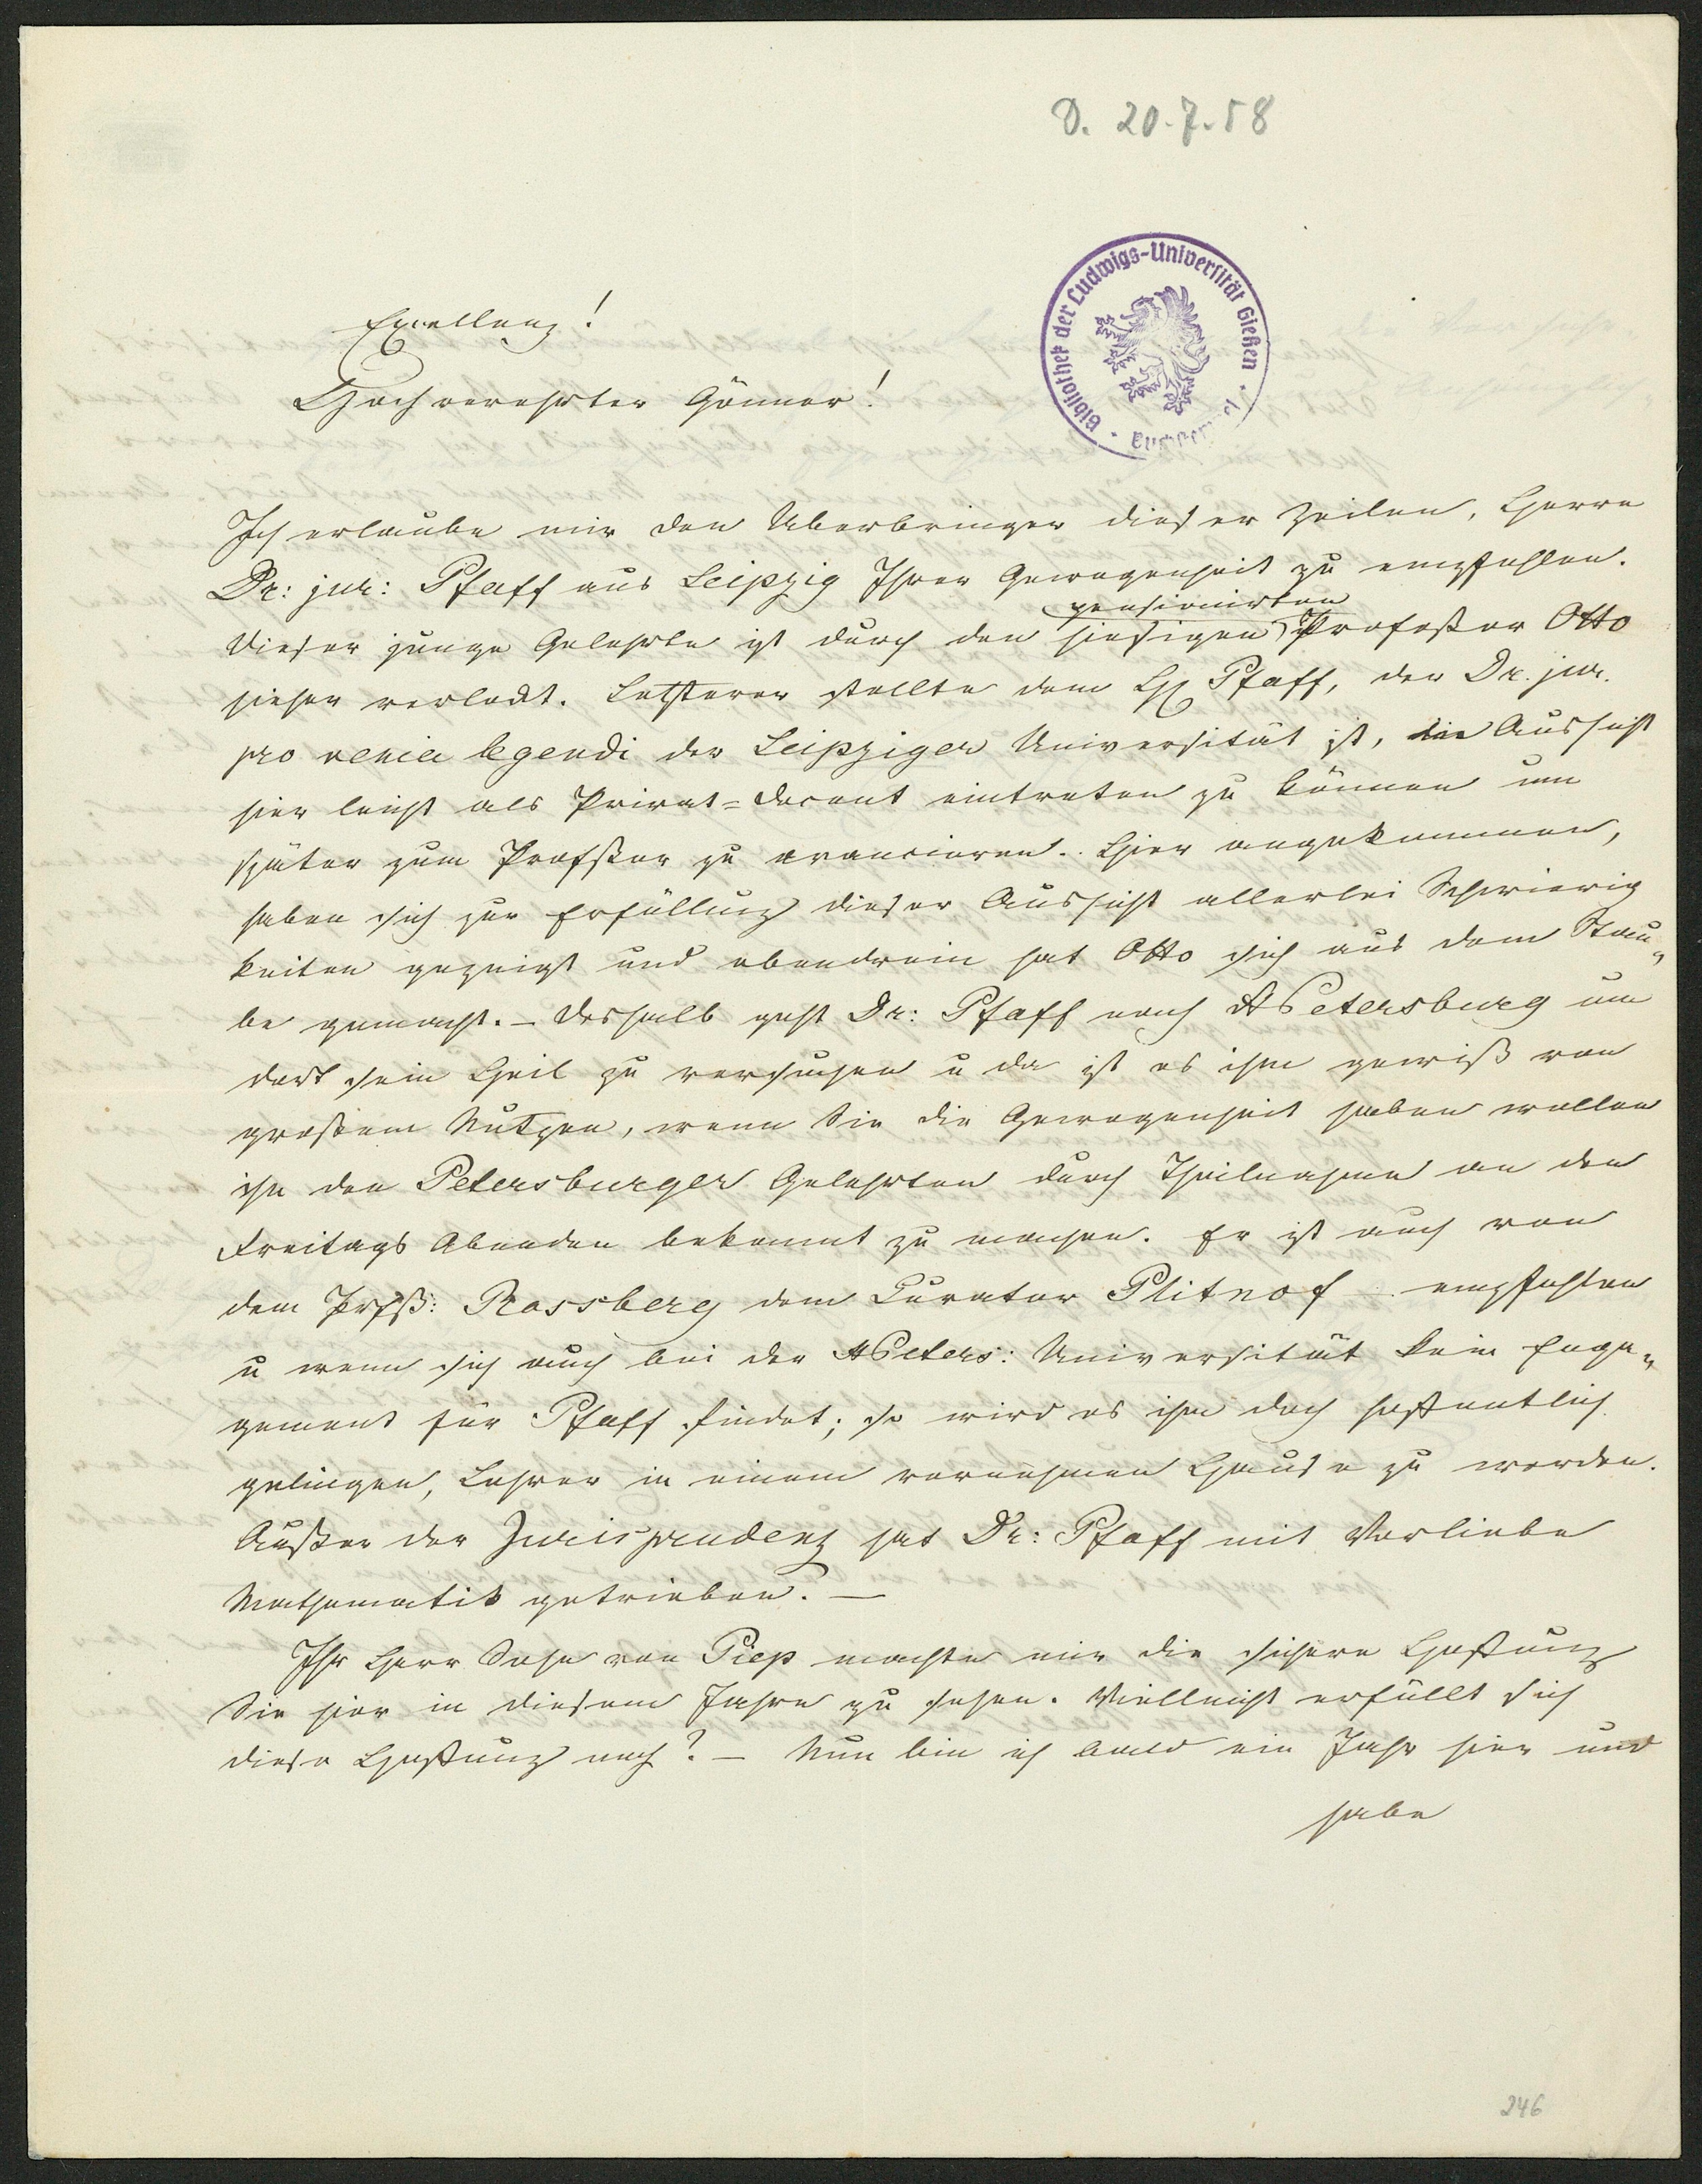 D. 20.7.58
Bibliothek der Ludwigs-Universität Gießen
Excellenz!
Hochverehrter Gönner!
Ich erlaube mir den Uberbringer dieser Zeilen, Herrn
Dr: jur: Pfaff aus Leipzig Ihrer Gewogenheit zu empfehlen.
pensionirten
Dieser junge Gelehrte ist durch den hiesigen Profeßor Otto
hieher verlockt. Letzterer stellte dem H Pfaff, der Dr. jur.
pro venia legendi der Leipziger Universität ist, die Aussicht
hier leicht als Privat=Docent eintreten zu können um
später zum Profßor zu avancieren. Hier angekommen,
haben sich zur Erfüllung dieser Aussicht allerlei Schwierig
keiten gezeigt und obendrein hat Otto sich aus dem Stau„
be gemacht. – Deshalb geht Dr: Pfaff nach St Petersburg um
dort sein Heil zu versuchen u da ist es ihm gewiß von
großem Nutzen, wenn Sie die Gewogenheit haben wollen
ihn den Petersburger Gelehrten durch Theilnahme an den
Freitags Abenden bekannt zu machen. Er ist auch von
dem Prfß: Rossberg dem Curator Plitnof empfohlen
u wenn sich auch bei der St Peters: Universität kein Enga„
gement für Pfaff findet; so wird es ihm doch hoffentlich
gelingen, Lehrer in einem vornehmen Hause zu werden.
Außer der Jurisprudenz hat Dr: Pfaff mit Vorliebe
Mathematik getrieben. —
Ihr Herr Sohn von Piep machte mir die sichere Hoffnung
Sie hier in diesem Jahre zu sehen. Vielleicht erfüllt sich
diese Hoffnung noch? – Nun bin ich bald ein Jahr hier und
habe
246